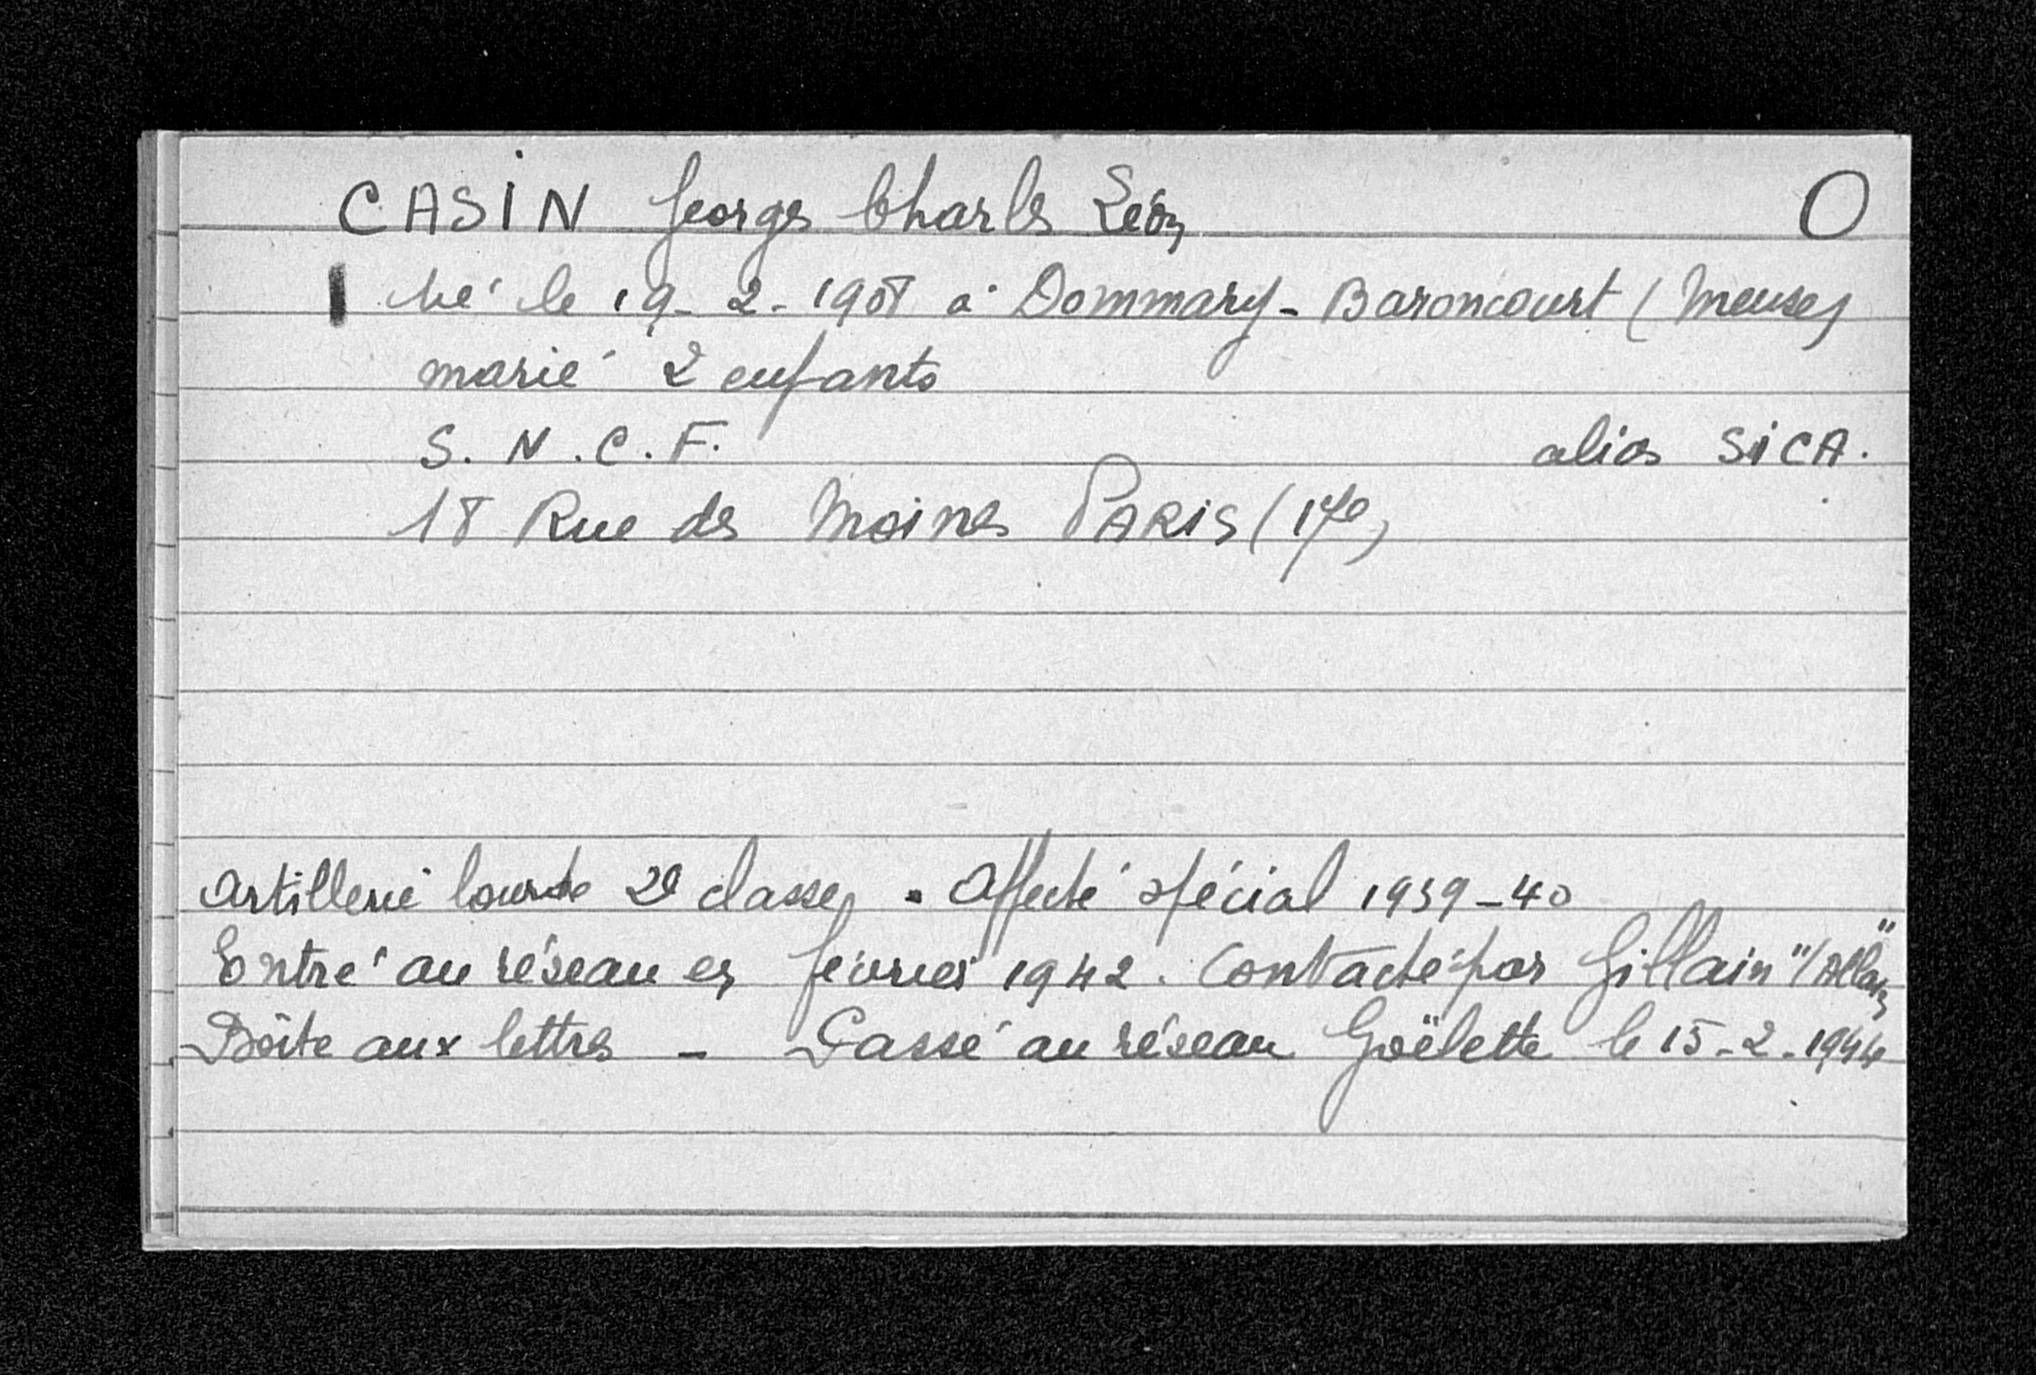 CASIN Georges Charles Léon O
Né le 19-2-1908 à Dommary-Baroncourt (Meuse)
marié 2 enfants
S.N.C.F. alias SICA.
18 Rue des Moines PARIS (17e)
Artillerie lourde 2e classe. Affecté spécial 1939-40
Entré au réseau en février 1942. Contacté par Gillain "Allain"
Boîte aux lettres - Passé au réseau Goëlette le 15-2-1944